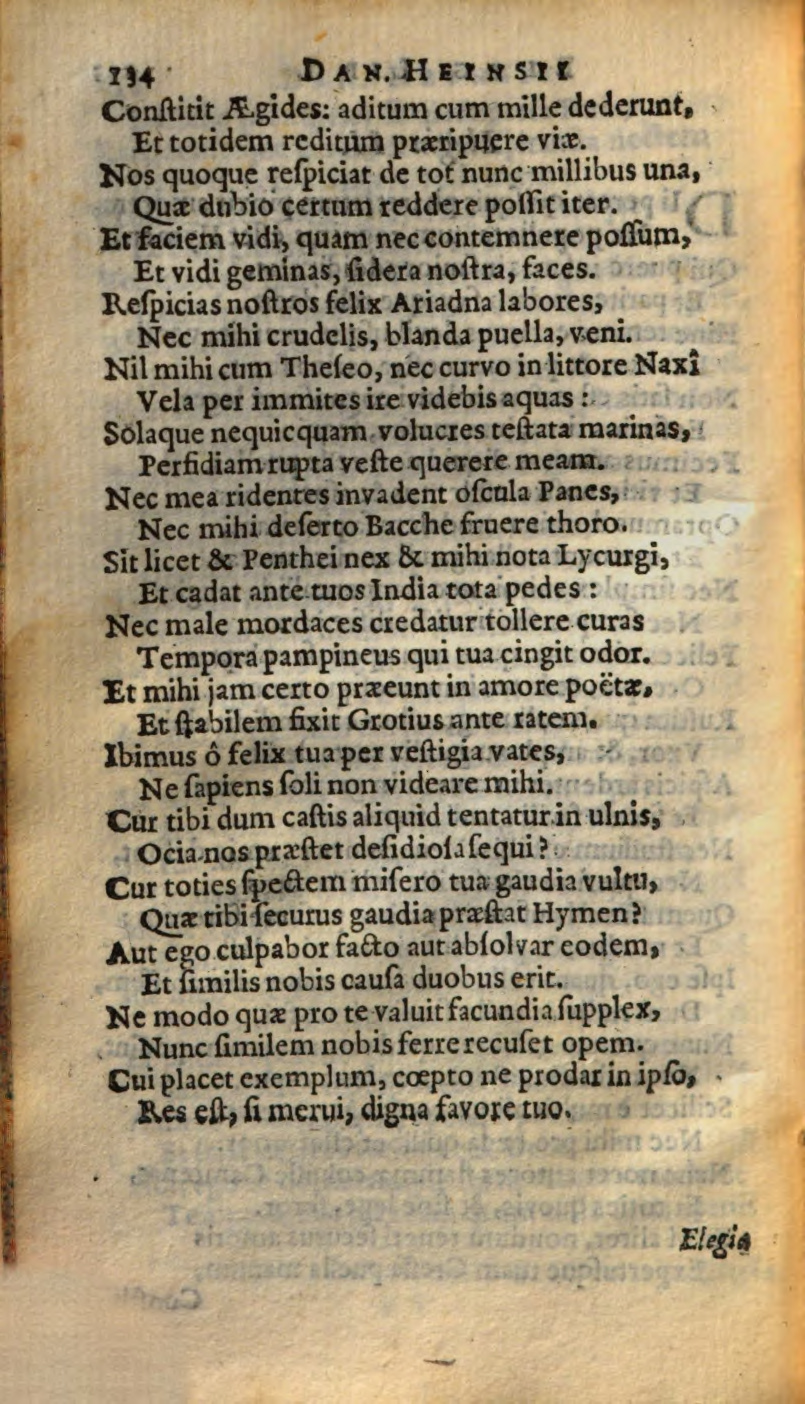 134 DAN. HEINSII
Conſtitit Ægides: aditum cum mille dederunt,
Et totidem reditum præripuere viæ.
Nos quoque reſpiciat de tot nunc millibus una,
Quæ dubio certum reddere poſſit iter.
Et faciem vidi, quam nec contemnere poſſum,
Et vidi geminas, ſidera noſtra, faces.
Reſpicias noſtros felix Ariadna labores,
Nec mihi crudelis, blanda puella, veni.
Nil mihi cum Theſeo, nec curvo in littore Naxî
Vela per immites ire videbis aquas:
Solaque nequicquam volucres teſtata marinas,
Perfidiam rupta veſte querere meam.
Nec mea ridentes invadent oſcula Panes,
Nec mihi deſerto Bacche fruere thoro.
Sit licet & Penthei nex & mihi nota Lycurgi,
Et cadat ante tuos India tota pedes:
Nec male mordaces credatur tollere curas
Tempora pampineus qui tua cingit odor.
Et mihi jam certo præeunt in amore poëtæ,
Et ſtabilem fixit Grotius ante ratem.
Ibimus ô felix tua per veſtigia vates,
Ne ſapiens ſoli non videare mihi.
Cur tibi dum caſtis aliquid tentatur in ulnis,
Ocia nos præſtet deſidioſa ſequi?
Cur toties ſpectem miſero tua gaudia vultu,
Quæ tibi ſecurus gaudia præſtat Hymen?
Aut ego culpabor facto aut abſolvar eodem,
Et ſimilis nobis cauſa duobus erit.
Ne modo quæ pro te valuit facundia ſupplex,
Nunc ſimilem nobis ferre recuſet opem.
Cui placet exemplum, cœpto ne prodar in ipſo,
Res eſt, ſi merui, digna favore tuo.
Elegia